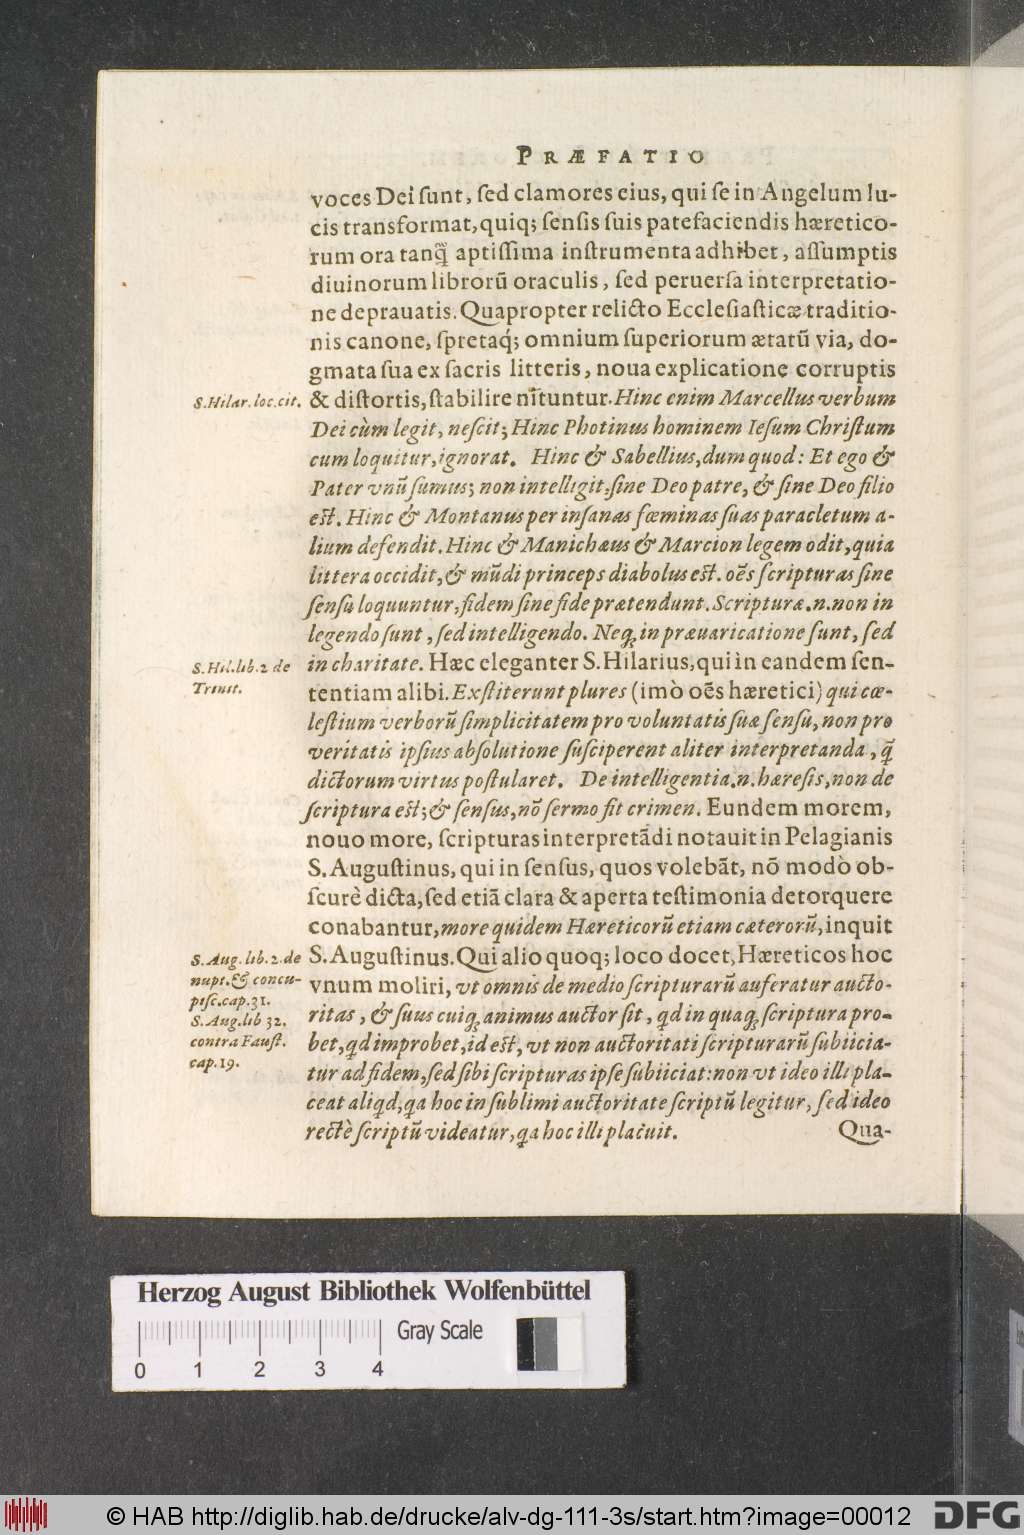 PRÆFATIO
voces Dei sunt, sed clamores eius, qui se in Angelum lu-
cis transformat, quiq; sensis suis patefaciendis hæretico-
rum ora tanq̃ aptissima instrumenta adhibet, assumptis
diuinorum librorũ oraculis, sed peruersa interpretatio-
ne deprauatis. Quapropter relicto Ecclesiasticæ traditio-
nis canone, spretaq́; omnium superiorum ætatũ via, do-
gmata sua ex sacris litteris, noua explicatione corruptis
S. Hilar. loc. cit.
& distortis, stabilire nituntur. Hinc enim Marcellus verbum
Dei cùm legit, nescit; Hinc Photinus hominem Iesum Christum
cum loquitur, ignorat. Hinc & Sabellius, dum quod: Et ego &
Pater vnũ sumus; non intelligit, sine Deo patre, & sine Deo filio
est. Hinc & Montanus per insanas fœminas suas paracletum a-
lium defendit. Hinc & Manichæus & Marcion legem odit, quia
littera occidit, & mũdi princeps diabolus est. oẽs scripturas sine
sensu loquuntur, fidem sine fide prætendunt. Scripturæ .n. non in
legendo sunt, sed intelligendo. Neq; in præuaricatione sunt, sed
S. Hil. lib. 2 de
Trinit.
in charitate. Hæc eleganter S. Hilarius, qui in eandem sen-
tentiam alibi. Exstiterunt plures (imò oẽs hæretici) qui cœ-
lestium verborũ simplicitatem pro voluntatis suæ sensu, non pro
veritatis ipsius absolutione susciperent aliter interpretanda, q̃
dictorum virtus postularet. De intelligentia .n. hæresis, non de
scriptura est; & sensus, nõ sermo fit crimen. Eundem morem,
nouo more, scripturas interpretãdi notauit in Pelagianis
S. Augustinus, qui in sensus, quos volebãt, nõ modò ob-
scurè dicta, sed etiã clara & aperta testimonia detorquere
conabantur, more quidem Hæreticorũ etiam cæterorũ, inquit
S. Aug. lib. 2. de
nupt. & concu-
pisc. cap. 31.
S. Aug. lib 32.
contra Faust.
cap. 19.
S. Augustinus. Qui alio quoq; loco docet, Hæreticos hoc
vnum moliri, vt omnis de medio scripturarũ auferatur aucto-
ritas, & suus cuiq; animus auctor sit, qd in quaq; scriptura pro-
bet, qd improbet, id est, vt non auctoritati scripturarũ subiicia-
tur ad fidem, sed sibi scripturas ipse subiiciat: non vt ideo illi pla-
ceat aliqd, qa hoc in sublimi auctoritate scriptũ legitur, sed ideo
rectè scriptũ videatur, qa hoc illi placuit.
Qua-
Herzog August Bibliothek Wolfenbüttel
Gray Scale
0 1 2 3 4
© HAB http://diglib.hab.de/drucke/alv-dg-111-3s/start.htm?image=00012
DFG